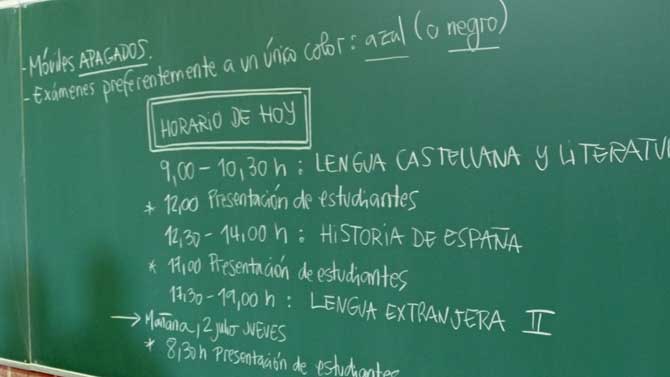 - Móviles APAGADOS.
- Exámenes preferentemente a un único color: azul (o negro)
HORARIO DE HOY
9,00 - 10,30 h : LENGUA CASTELLANA Y LITERATU
* 12,00 Presentación de estudiantes
12,30 - 14,00 h : HISTORIA DE ESPAÑA
* 17,00 Presentación de estudiantes
17,30 - 19,00 h : LENGUA EXTRANJERA II
→ Mañana, 2 julio JUEVES
* 8,30 h Presentación de estudiantes